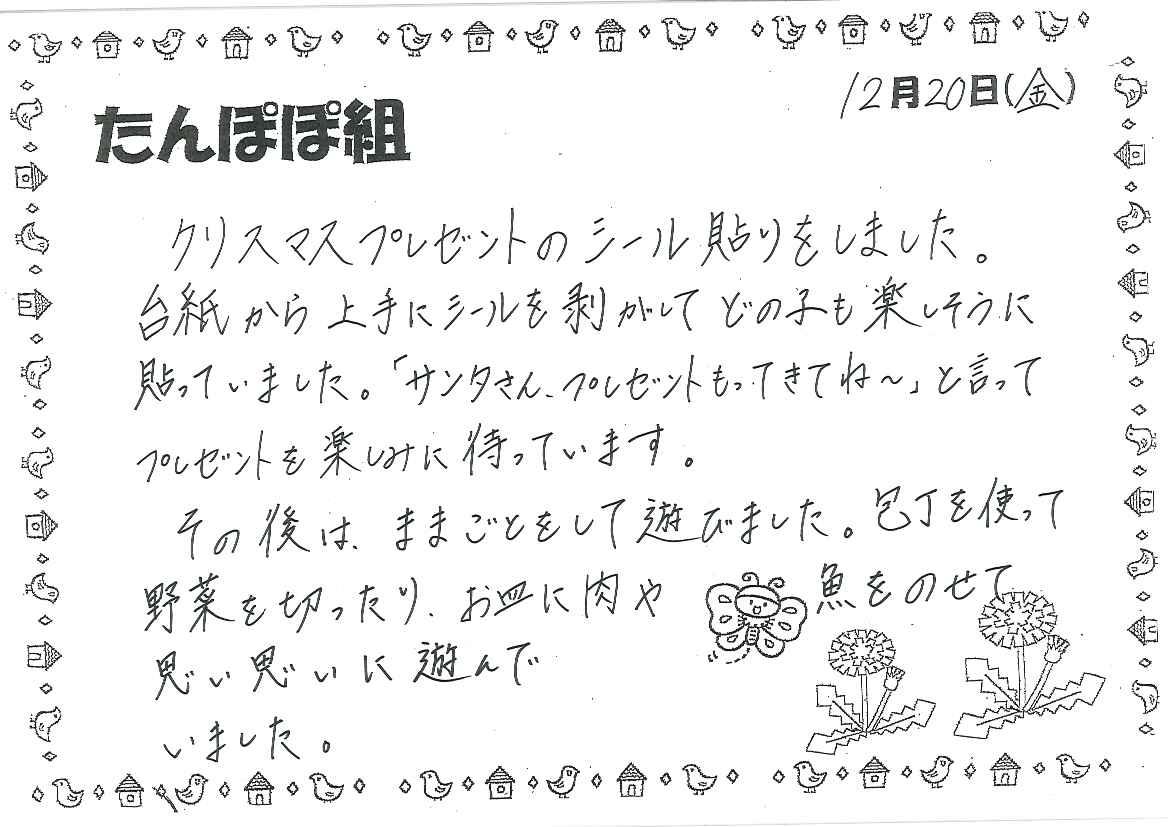 12月20日(金)
たんぽぽ組
クリスマスプレゼントのシール貼りをしました。
台紙から上手にシールを剥がしてどの子も楽しそうに
貼っていました。「サンタさん、プレゼントもってきてね〜」と言って
プレゼントを楽しみに待っています。
その後は、ままごとをして遊びました。包丁を使って
野菜を切ったり、お皿に肉や魚をのせて
思い思いに遊んで
いました。